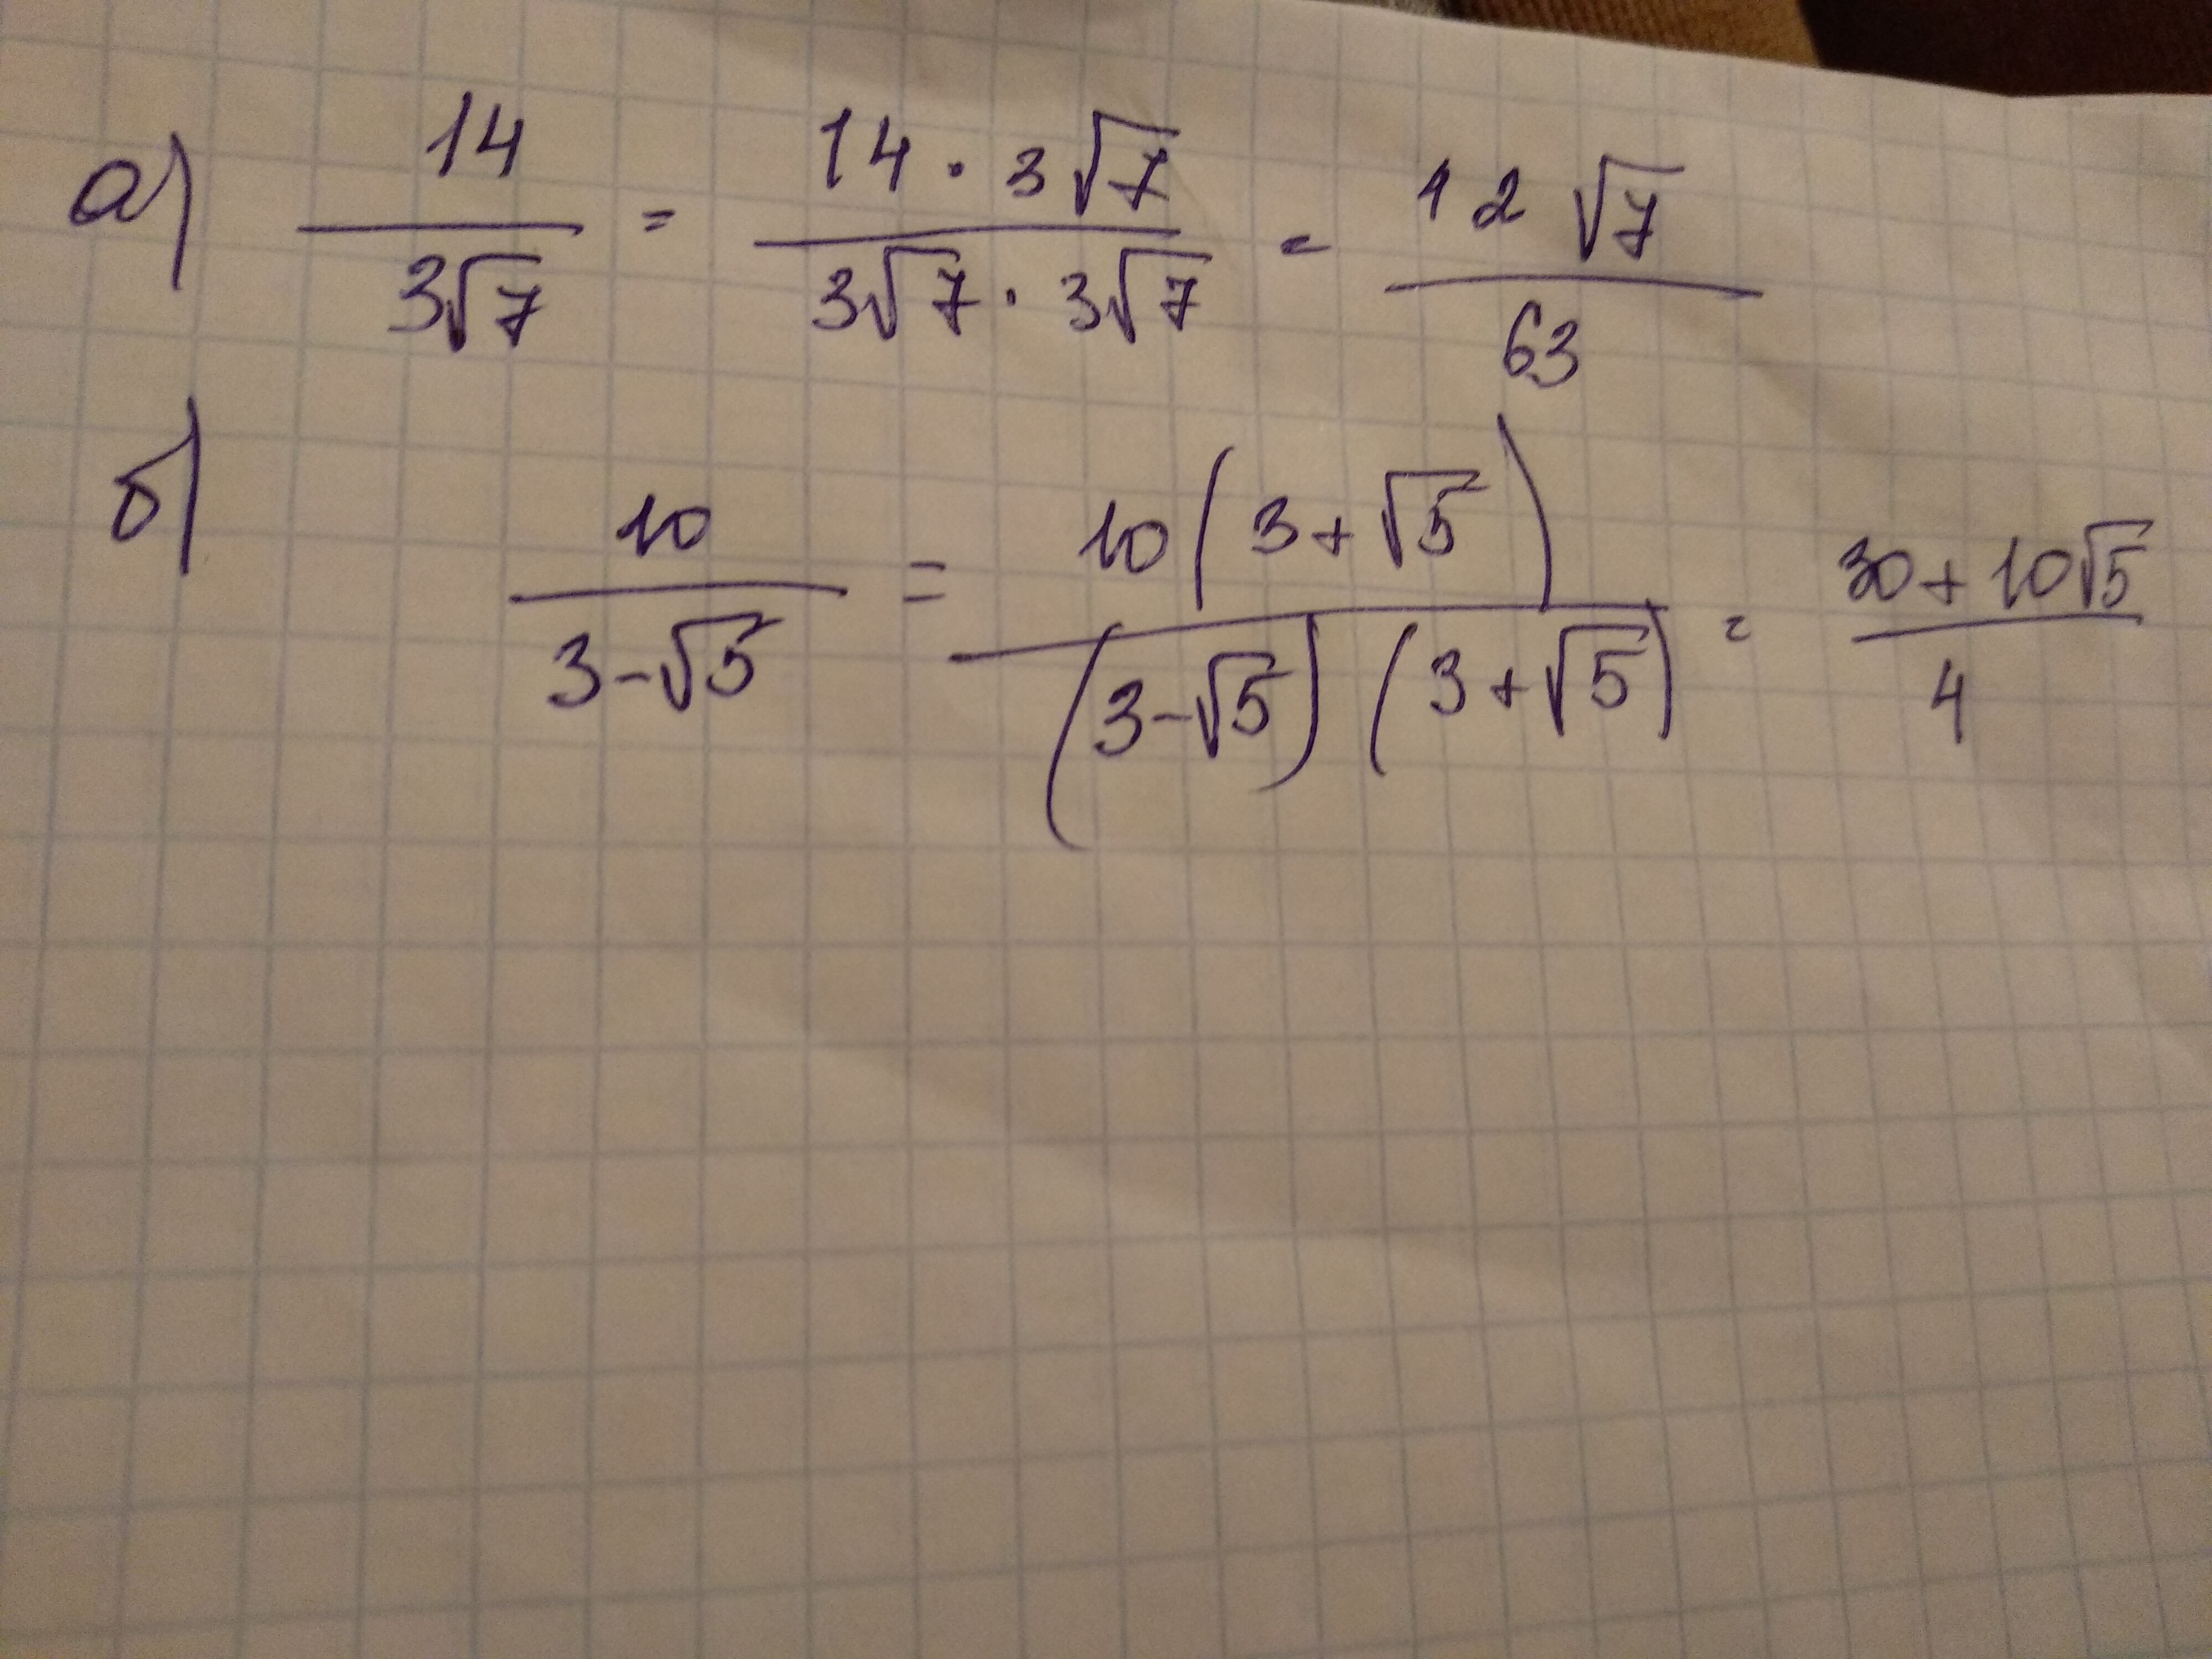 а) 14/3√7 = 14 · 3√7/3√7 · 3√7 = 12√7/63
б) 10/3-√5 = 10(3+√5)/(3-√5)(3+√5) = 30+10√5/4